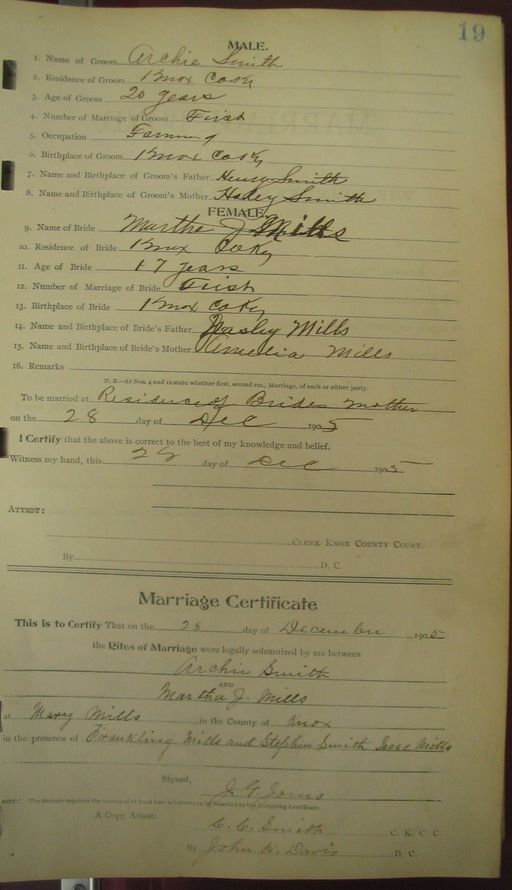 19
MALE.
1. Name of Groom Archie Smith
2. Residence of Groom Knox Co Ky
3. Age of Groom 20 years
4. Number of Marriage of Groom First
5. Occupation Farming
6. Birthplace of Groom Knox Co Ky
7. Name and Birthplace of Groom's Father Henry Smith
8. Name and Birthplace of Groom's Mother Smith
FEMALE.
9. Name of Bride Martha J Mills
10. Residence of Bride Knox Co Ky
11. Age of Bride 17 years
12. Number of Marriage of Bride First
13. Birthplace of Bride Knox Co Ky
14. Name and Birthplace of Bride's Father Wesley Mills
15. Name and Birthplace of Bride's Mother Amelia Mills
16. Remarks
N. B.—At Nos. 4 and 12 state whether first, second etc., Marriage, of each or either party.
To be married at Residence of Brides Mother
on the 28 day of Dec 1905
I Certify that the above is correct to the best of my knowledge and belief.
Witness my hand, this day of Dec 1905
ATTEST:
CLERK KNOX COUNTY COURT.
By D. C.
Marriage Certificate
This is to Certify That on the 28 day of December 1905
the Rites of Marriage were legally solemnized by me between
Archie Smith
AND
Martha J. Mills
at Mary Mills in the County of Knox
in the presence of Frankling Mills and Stephen Smith Isaac Mills
Signed,
J. G. Jones
NOTE: The Statute requires the names of at least two witnesses to be inserted in the foregoing Certificate.
A Copy Attest:
C. C. Smith C. K. C. C.
By John H. Davis D. C.